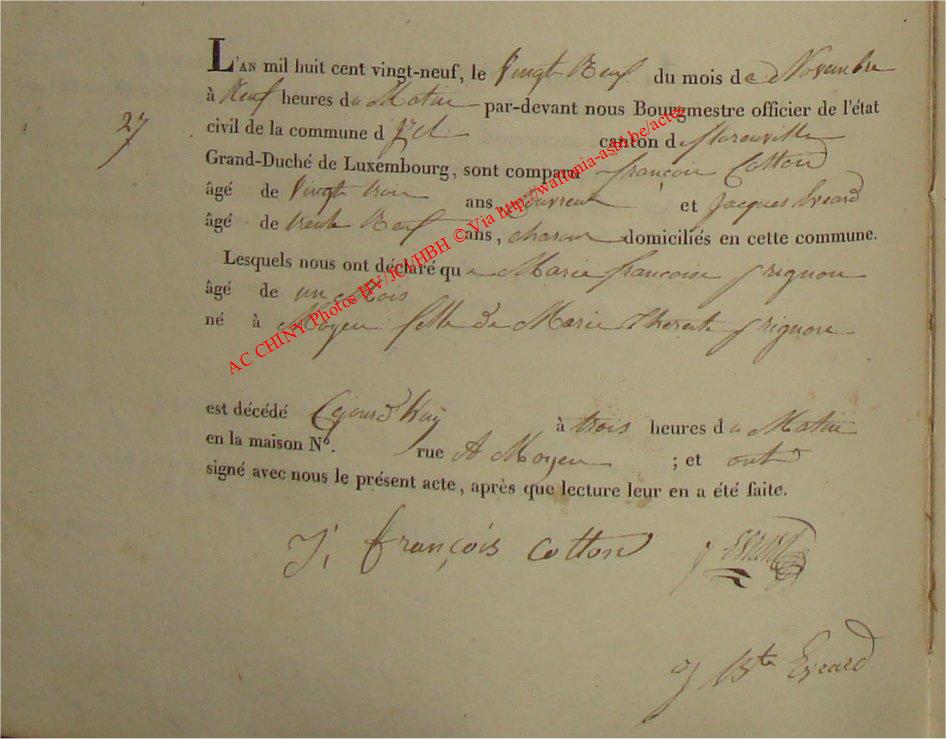 L'AN mil huit cent vingt-neuf, le Vingt Neuf du mois de Novembre
27
à Neuf heures du Matin par-devant nous Bourgmestre officier de l'état
civil de la commune d' canton de florenville
Grand-Duché de Luxembourg, sont comparu françois Cotton
âgé de Vingt trois ans, Couvreur et Jacques Evrard
âgé de trente Neuf ans, domiciliés en cette commune.
Lesquels nous ont déclaré que Marie francoise grignon
âgé de un Mois
né à Moyen fille de Marie therese grignon
est décédé Cejourd'huy à trois heures du Matin
en la maison N°. rue A Moyen ; et ont
signé avec nous le présent acte, après que lecture leur en a été faite.
J; françois cotton J Evrard
J Bte Evrard
AC CHINY Photos HV/JCI/HBH © Via http://wallonia-asbl.be/actes